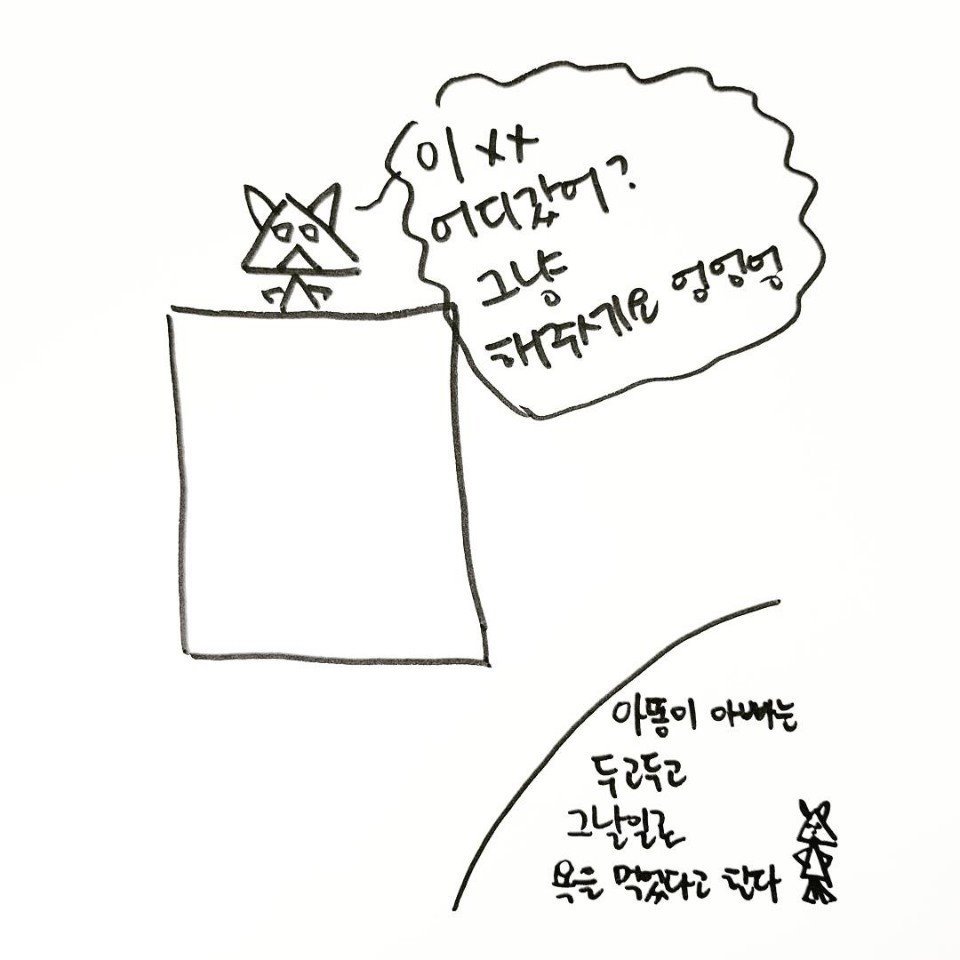 이 ××
어디갔어?
그냥
해주시게요 엉엉엉
아똥이 아빠는
두고두고
그날일로
욕을 먹었다고 한다